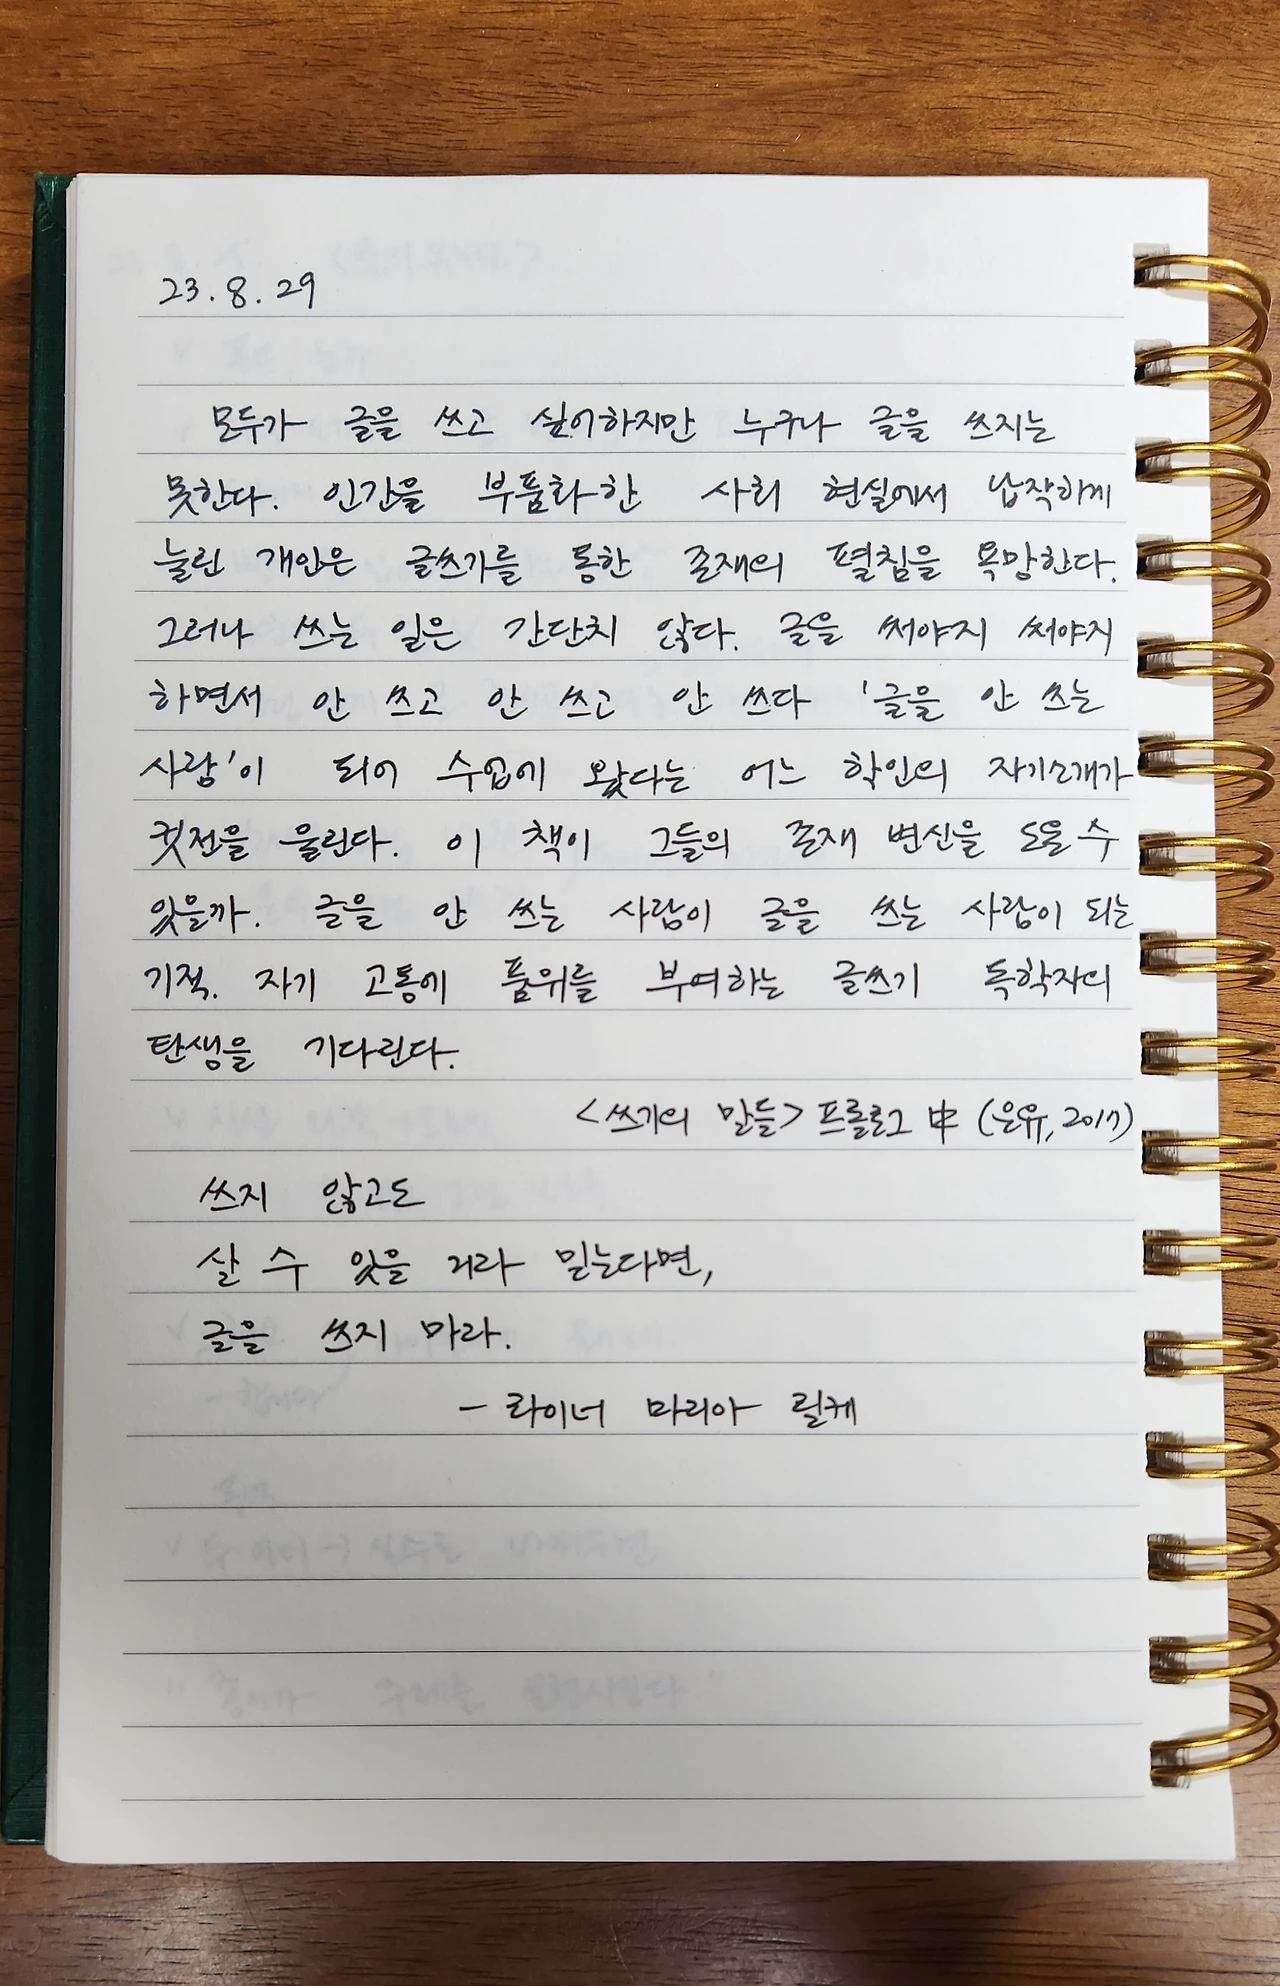 23.8.29
모두가 글을 쓰고 싶어하지만 누구나 글을 쓰지는
못한다. 인간을 부품화한 사회 현실에서 납작하게
눌린 개인은 글쓰기를 통한 존재의 펼침을 욕망한다.
그러나 쓰는 일은 간단치 않다. 글을 써야지 써야지
하면서 안 쓰고 안 쓰고 안 쓰다 '글을 안 쓰는
사람'이 되어 수업에 왔다는 어느 학인의 자기소개가
귓전을 울린다. 이 책이 그들의 존재 변신을 도울 수
있을까. 글을 안 쓰는 사람이 글을 쓰는 사람이 되는
기적. 자기 고통에 품위를 부여하는 글쓰기 독학자의
탄생을 기다린다.
<쓰기의 말들> 프롤로그 中 (은유, 2017)
쓰지 않고도
살 수 있을 거라 믿는다면,
글을 쓰지 마라.
- 라이너 마리아 릴케